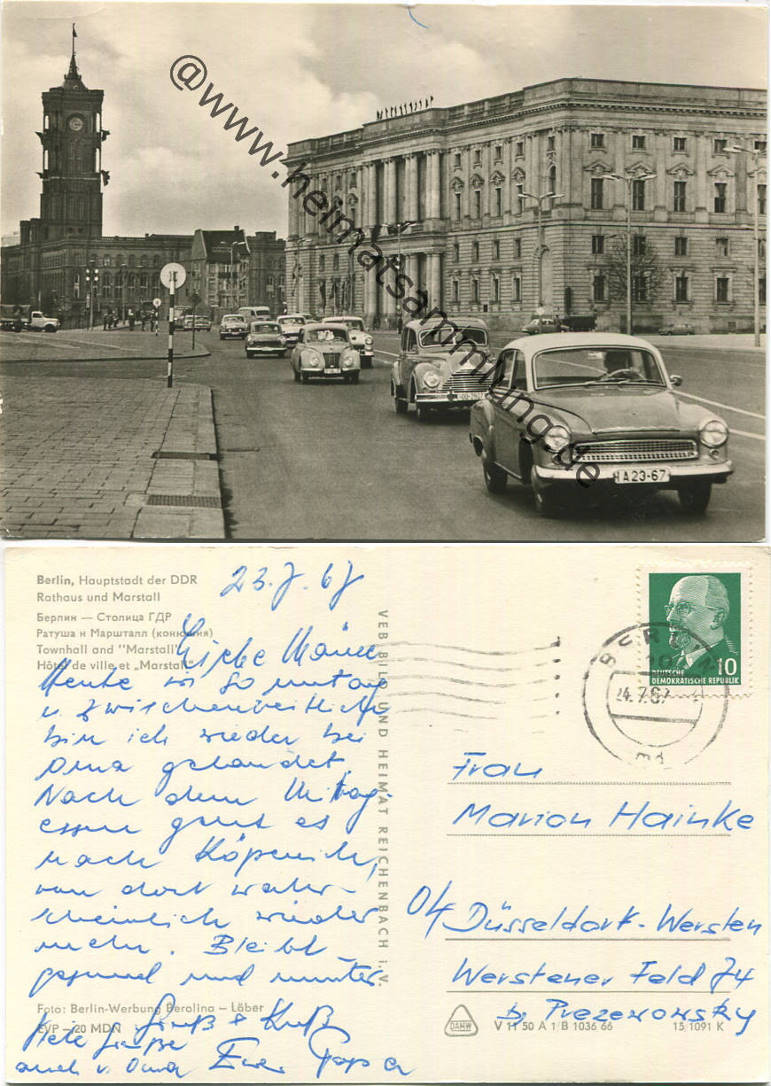 @www.heimatsammlung.de
IA 23-67
Berlin, Hauptstadt der DDR
Rathaus und Marstall
Берлин — Столица ГДР
Ратуша и Маршталл (конюшня)
Townhall and "Marstall"
Hôtel de ville et „Marstall"
23.7.67
Liebe Mäuse
Heute ist Sonntag
u. zwischenzeitlich
bin ich wieder bei
Oma gelandet.
Nach dem Mittag-
essen geht es
nach Köpenick,
von dort wahr-
scheinlich wieder
mehr. Bleibt
gesund und munter.
Gruß & Kuß
Euer Papa
Viele Grüße
auch v. Oma
Foto: Berlin-Werbung Berolina – Löber
EVP –20 MDN
VEB BILD UND HEIMAT REICHENBACH i. V.
10
DEUTSCHE
DEMOKRATISCHE REPUBLIK
BERLIN
24.7.67
Frau
Marion Hainke
04 Düsseldorf-Wersten
Werstener Feld 74
b. Prezewowsky
V 11 50 A 1 B 1036 66
15/1091 K